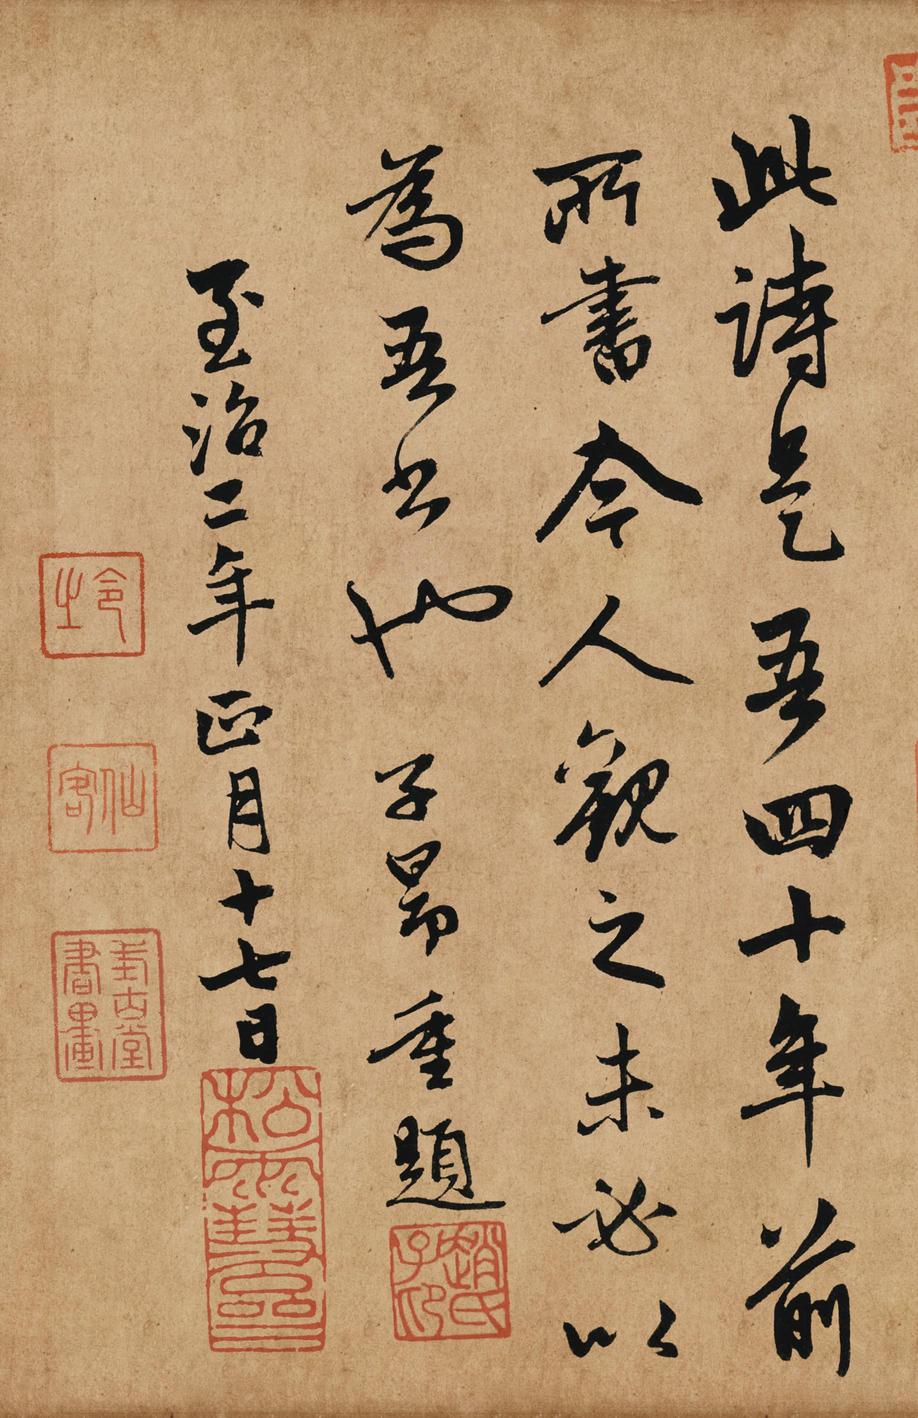 此詩是吾四十年前
所書今人觀之未必以
為吾書也子昂重題
至治二年正月十七日
趙氏子印
松雪齋
仙客
封古堂書畫